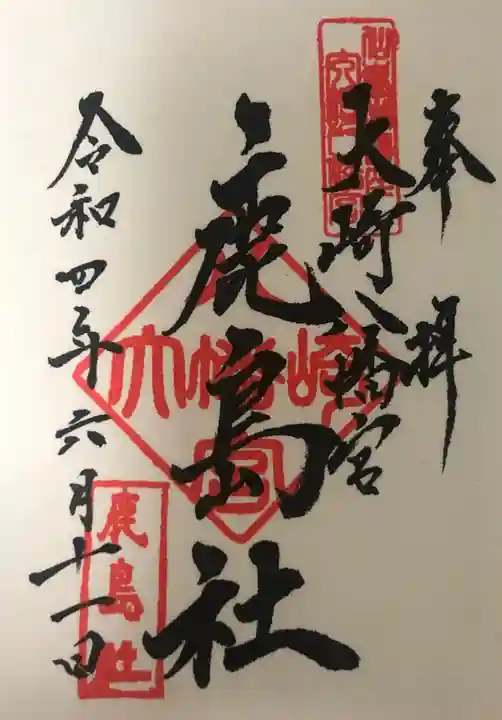 奉拝
大崎八幡宮
鹿島社
令和四年六月十一日
大崎八幡宮
鹿島社